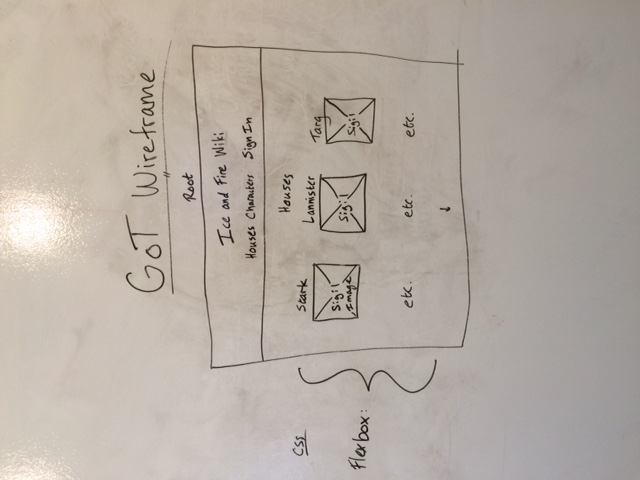 GoT Wireframe
Root
Ice and Fire Wiki
Houses Characters Sign In
Houses
CSS
Flexbox:
Stark
Lannister
Targ
Sigil
Image
Sigil
Sigil
etc.
etc.
etc.